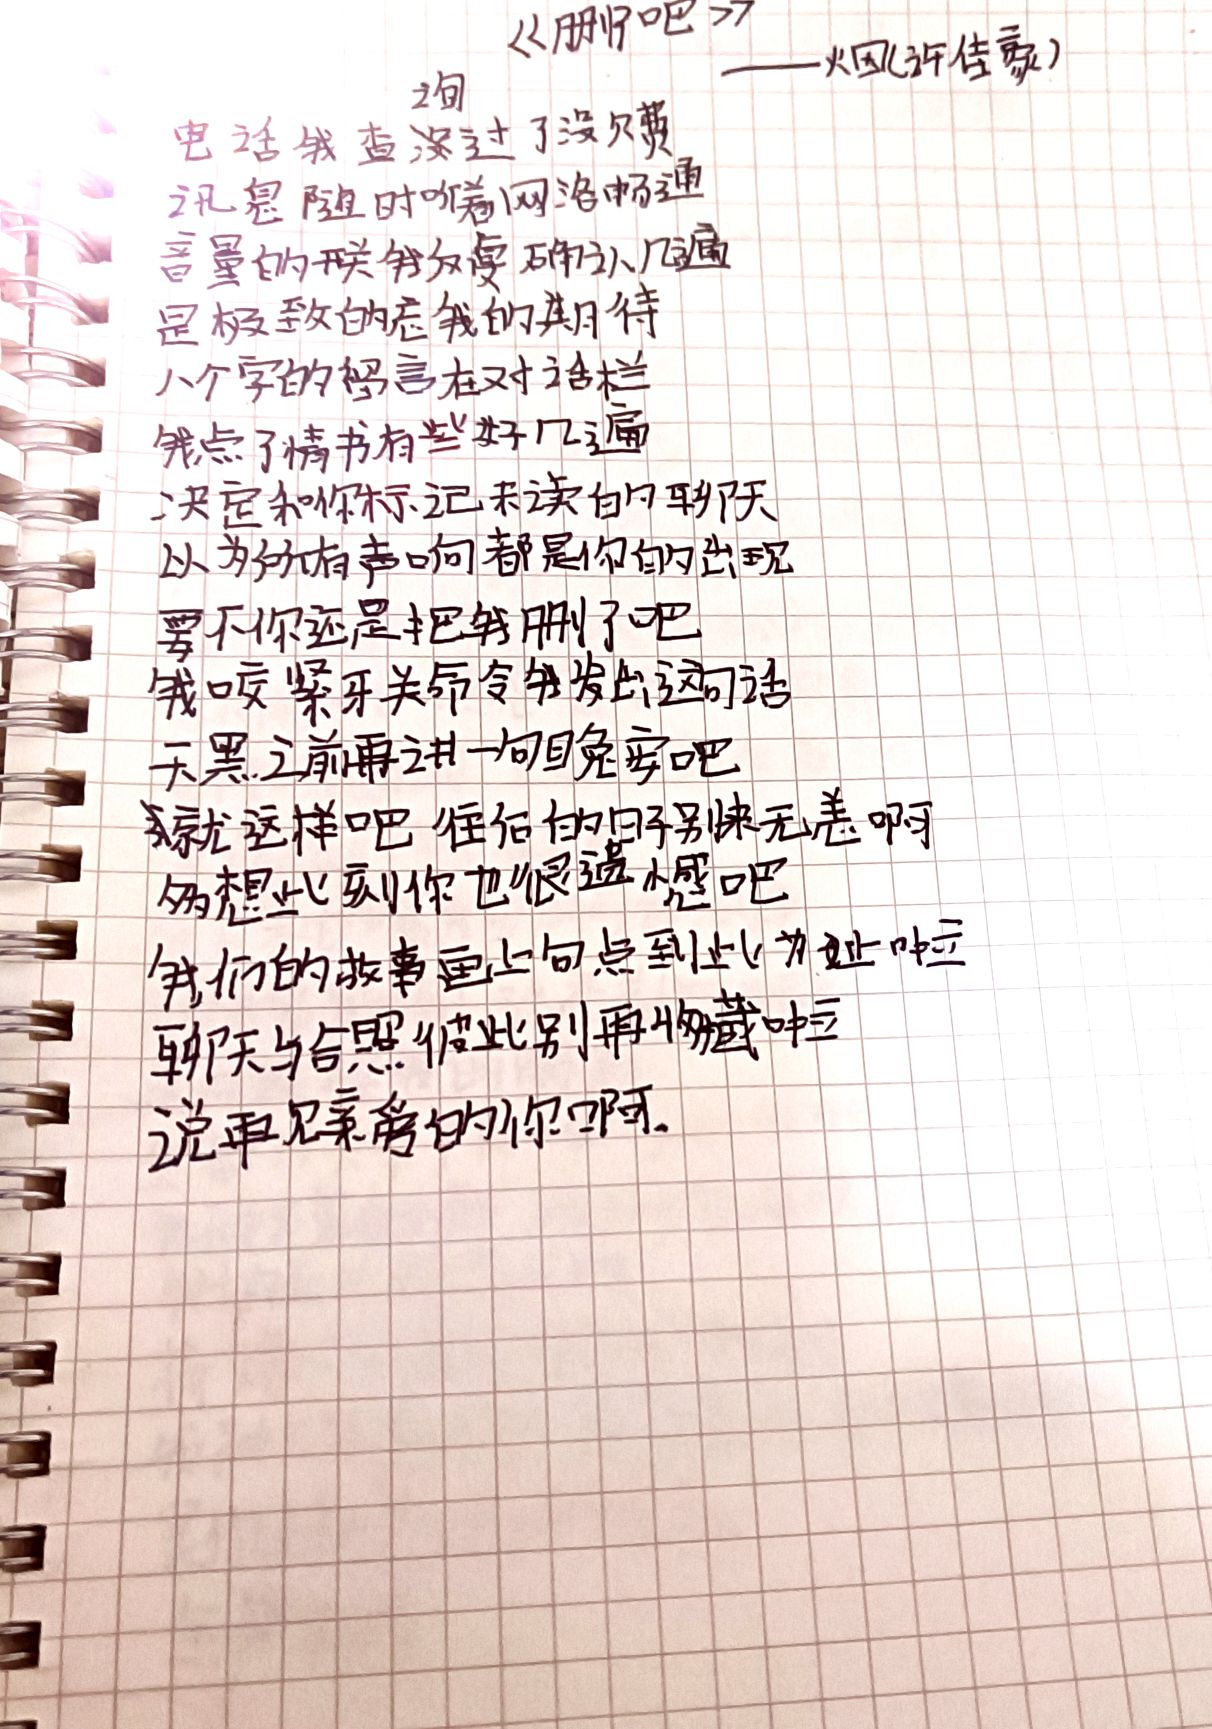 《删吧》
——烟(许佳豪)
询
电话我查没过了没欠费
讯息随时喉着网洛畅通
音量的开关我反复确认几遍
是极致的悲我的期待
八个字的留言在对话栏
我点了情书有些好几遍
决定和你标记未读的聊天
以为所有声响都是你的出现
要不你还是把我删了吧
我咬紧牙关命令我发出这句话
天黑之前再讲一句晚安吧
就这样吧 往后的日子别来无恙啊
多想此刻你也很遗憾吧
我们的故事画上句点到此为止啦
聊天与合照彼此别再收藏啦
说再见亲爱的你啊。